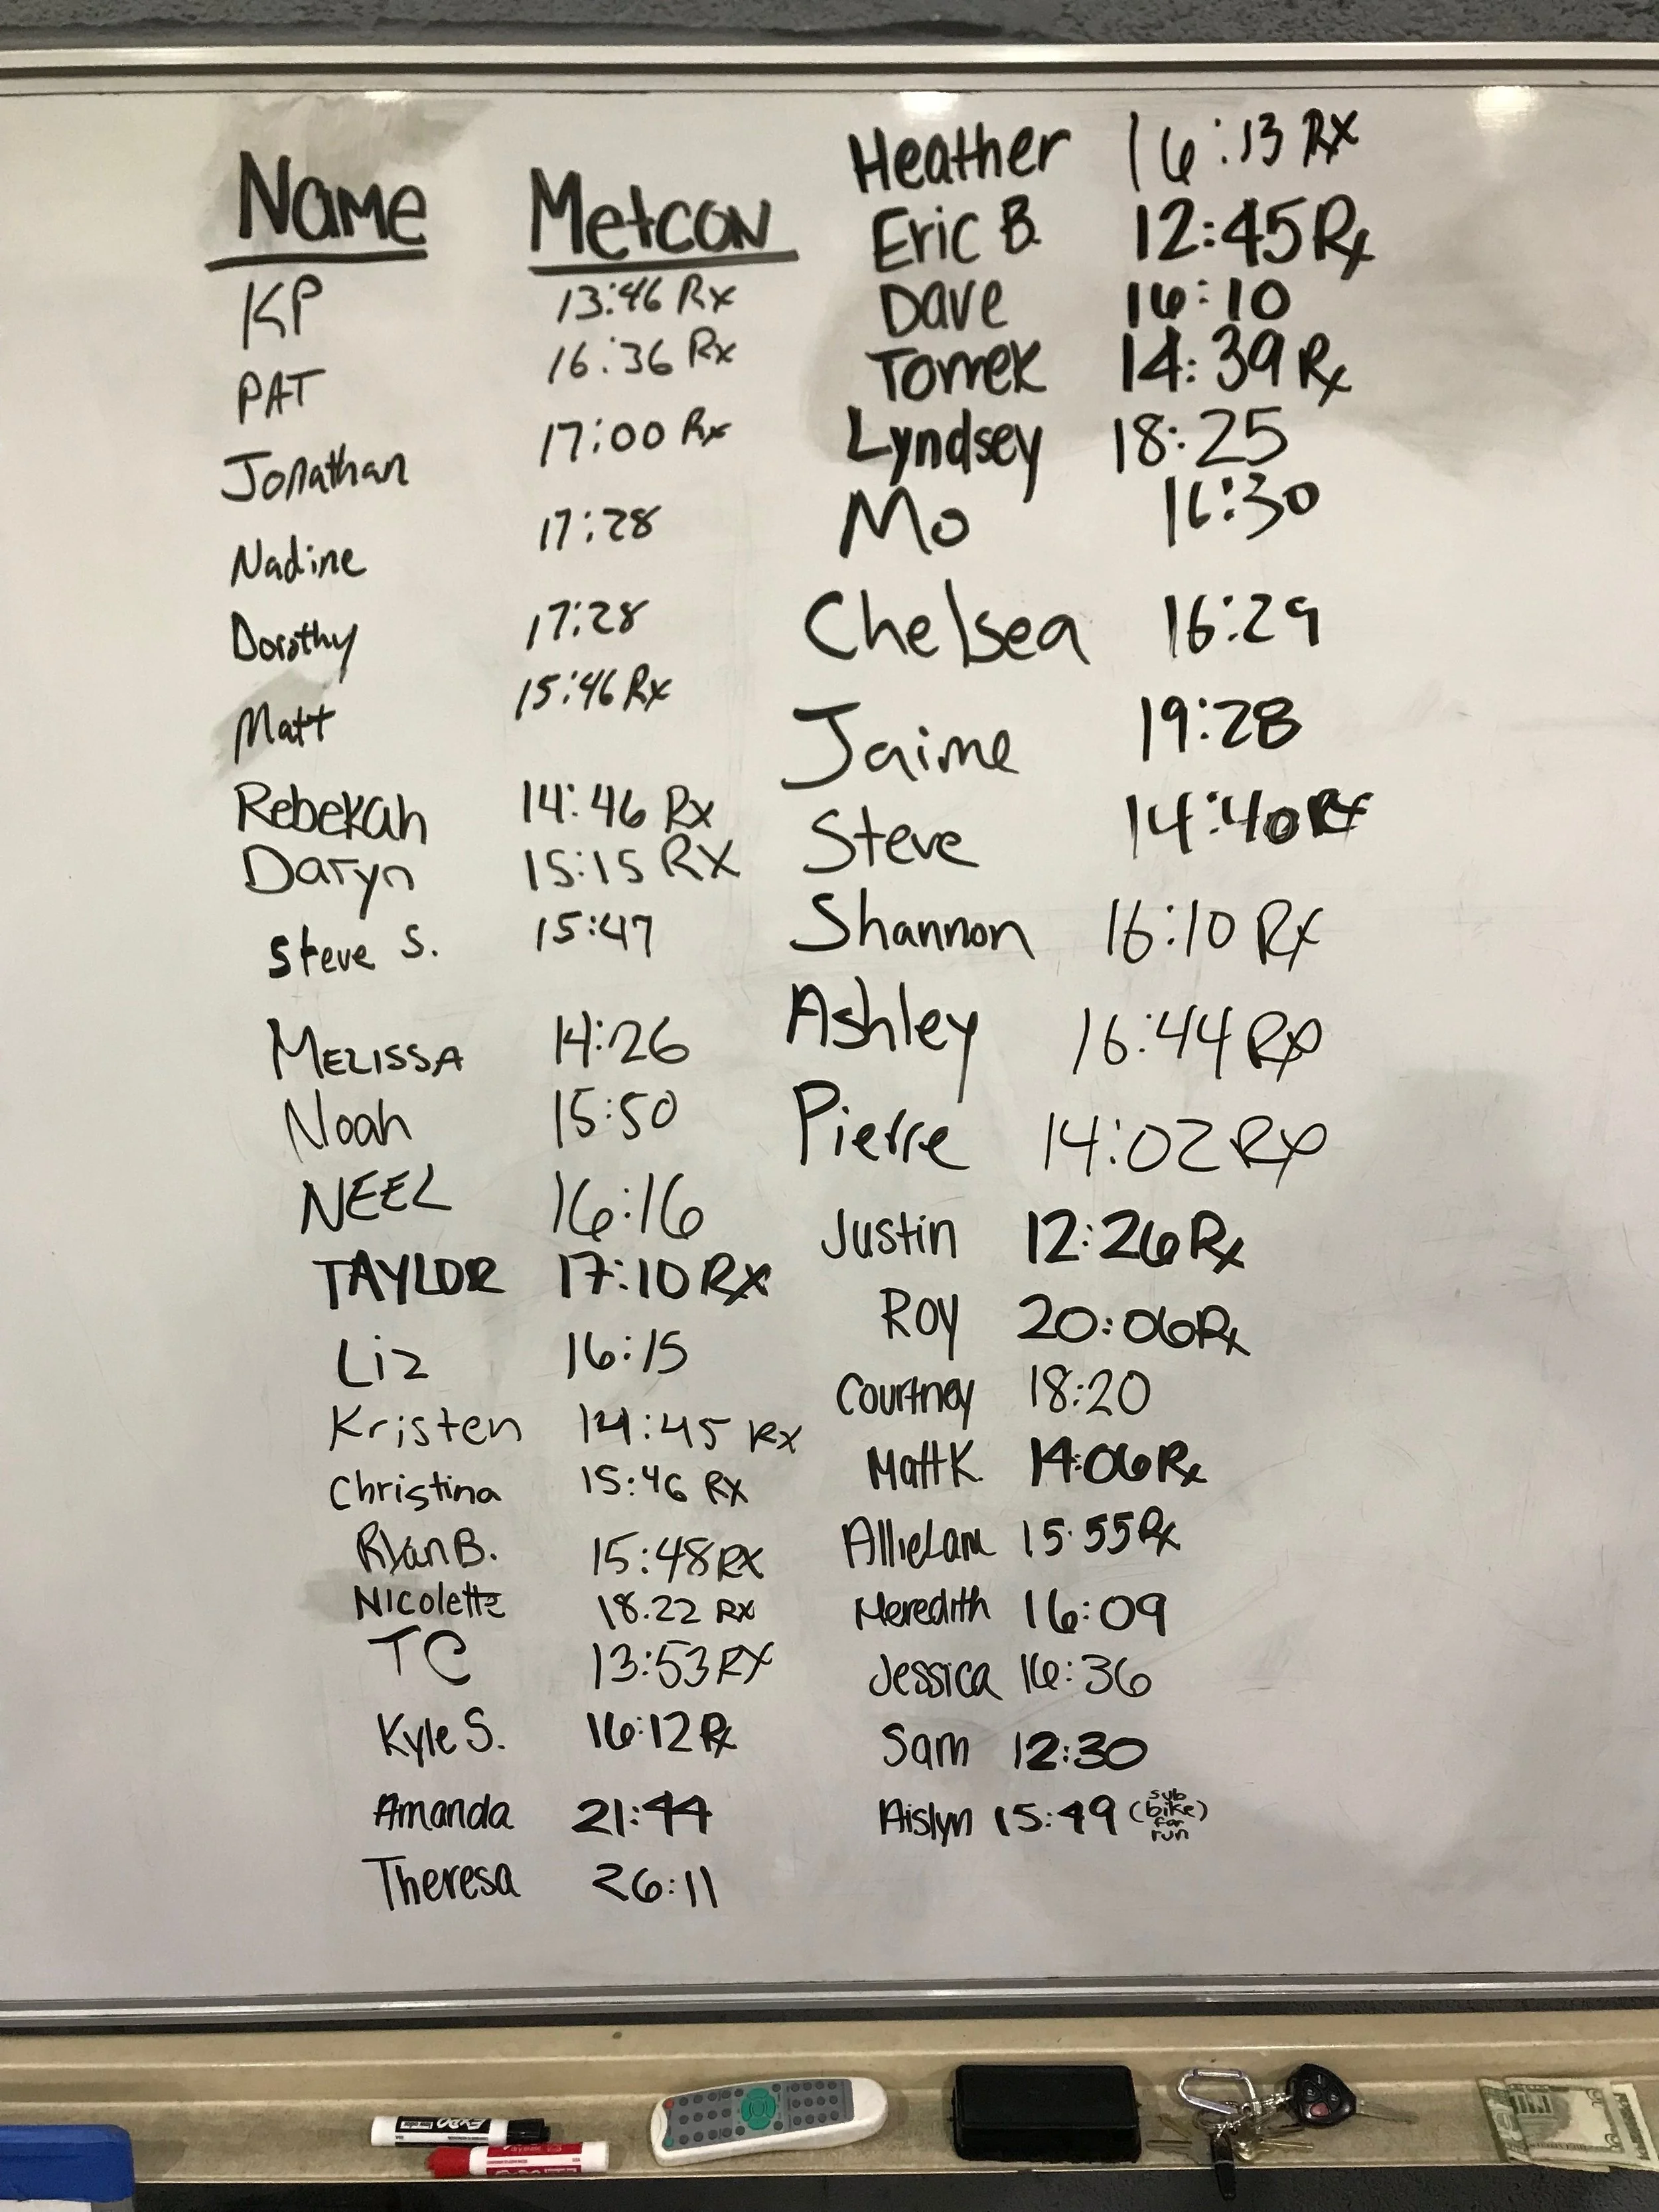 Name Metcon
KP 13:46 Rx
PAT 16:36 Rx
Jonathan 17:00 Rx
Nadine 17:28
Dorothy 17:28
Matt 15:46 Rx
Rebekah 14:46 Rx
Daryn 15:15 RX
Steve S. 15:47
MELISSA 14:26
Noah 15:50
NEEL 16:16
TAYLOR 17:10 Rx
Liz 16:15
Kristen 14:45 Rx
Christina 15:46 RX
Ryan B. 15:48 RX
Nicolette 18.22 RX
TC 13:53 RX
Kyle S. 16:12 Rx
Amanda 21:44
Theresa 26:11
Heather 16:13 Rx
Eric B. 12:45 Rx
Dave 16:10
Tomek 14:39 Rx
Lyndsey 18:25
Mo 16:30
Chelsea 16:29
Jaime 19:28
Steve 14:40 Rx
Shannon 16:10 Rx
Ashley 16:44 Rx
Pierre 14:02 Rx
Justin 12:26 Rx
Roy 20:06 Rx
Courtney 18:20
Matt K. 14:06 Rx
Allie Lam 15:55 Rx
Meredith 16:09
Jessica 16:36
Sam 12:30
Aislyn 15:49 (sub bike for run)
EXPO